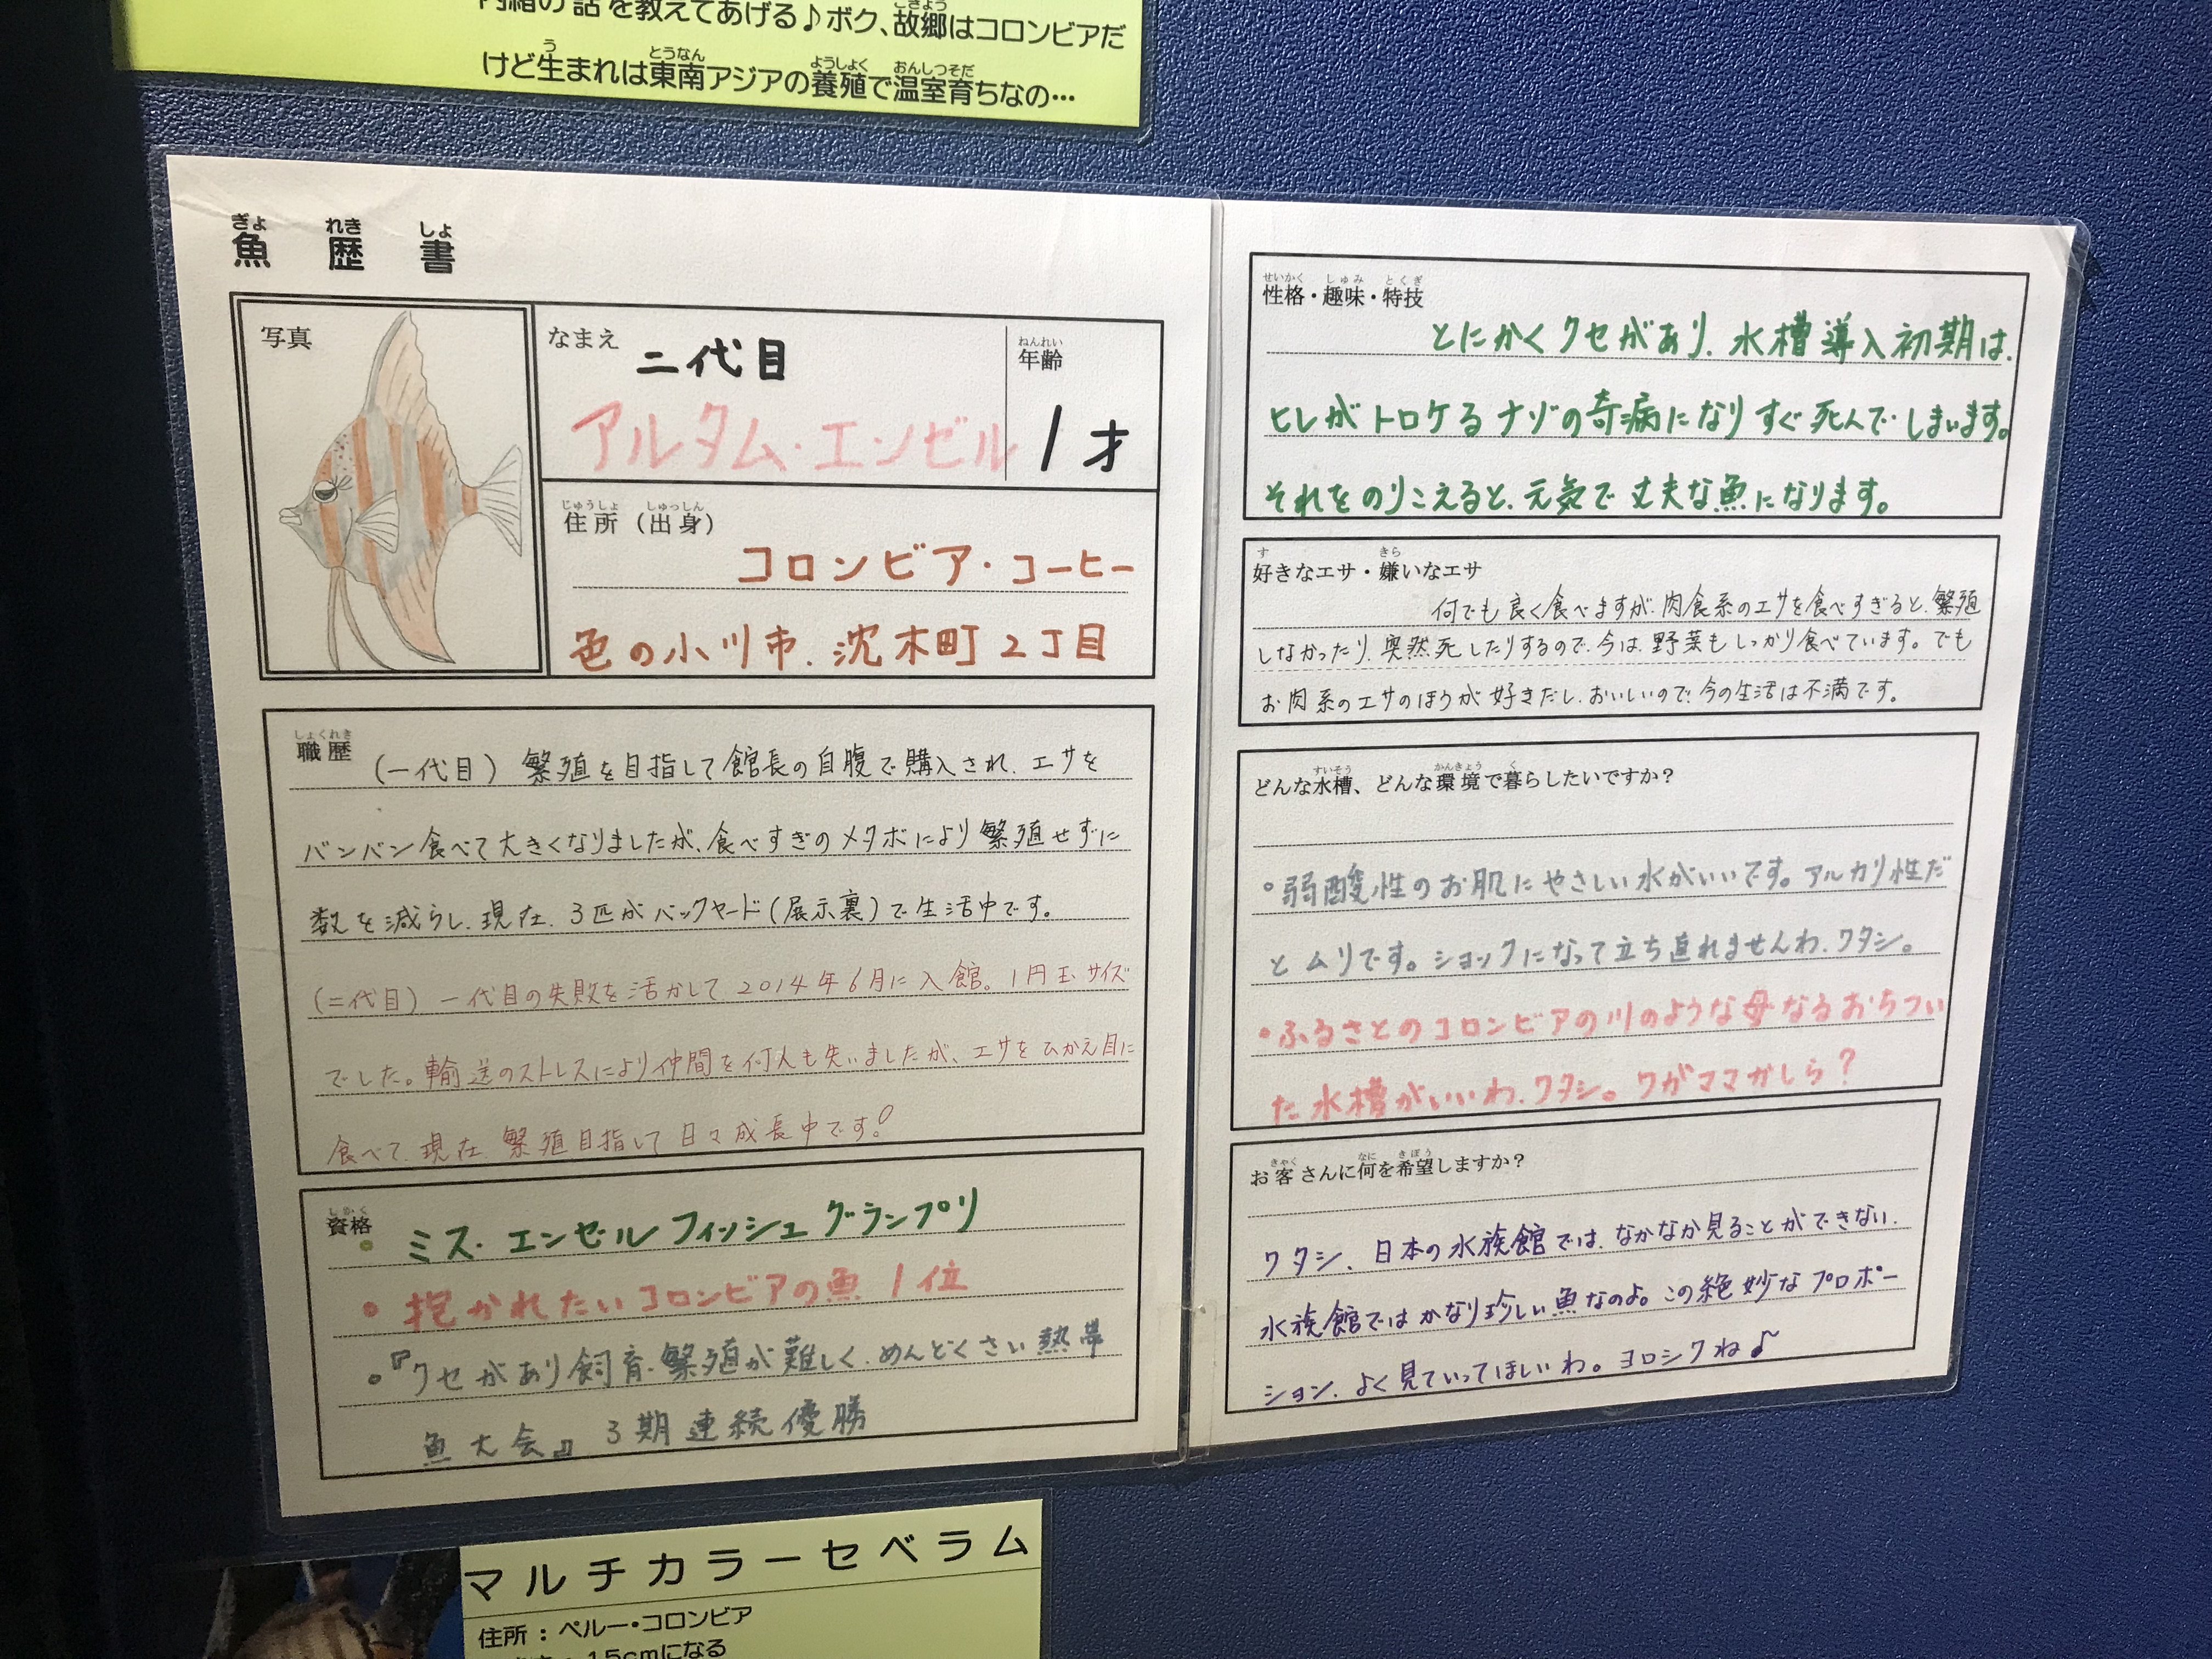 内緒の話を教えてあげる♪ボク、故郷はコロンビアだ
けど生まれは東南アジアの養殖で温室育ちなの…
魚歴書
写真
なまえ
二代目
アルタム・エンゼル
年齢
1才
住所（出身）
コロンビア・コーヒー
色の小川市、沈木町2丁目
職歴
（一代目）繁殖を目指して館長の自腹で購入され、エサを
バンバン食べて大きくなりましたが、食べすぎのメタボにより繁殖せずに
数を減らし、現在、3匹がバックヤード（展示裏）で生活中です。
（二代目）一代目の失敗を活かして2014年6月に入館。1円玉サイズ
でした。輸送のストレスにより仲間を何人も失いましたが、エサをひかえ目に
食べて、現在、繁殖目指して日々成長中です！
資格
・ミス・エンゼルフィッシュグランプリ
・抱かれたいコロンビアの魚1位
・『クセがあり飼育・繁殖が難しく、めんどくさい熱帯
魚大会』3期連続優勝
性格・趣味・特技
とにかくクセがあり、水槽導入初期は、
ヒレがトロケるナゾの奇病になりすぐ死んでしまいます。
それをのりこえると、元気で丈夫な魚になります。
好きなエサ・嫌いなエサ
何でも良く食べますが、肉食系のエサを食べすぎると、繁殖
しなかったり、突然死したりするので、今は、野菜もしっかり食べています。でも
お肉系のエサのほうが好きだし、おいしいので、今の生活は不満です。
どんな水槽、どんな環境で暮らしたいですか？
・弱酸性のお肌にやさしい水がいいです。アルカリ性だ
とムリです。ショックになって立ち直れませんわ、ワタシ。
・ふるさとのコロンビアの川のような母なるおちつい
た水槽がいいわ、ワタシ。ワガママかしら？
お客さんに何を希望しますか？
ワタシ、日本の水族館では、なかなか見ることができない、
水族館ではかなり珍しい魚なのよ。この絶妙なプロポー
ション、よく見ていってほしいわ。ヨロシクね♪
マルチカラーセベラム
住所：ペルー・コロンビア
15cmになる